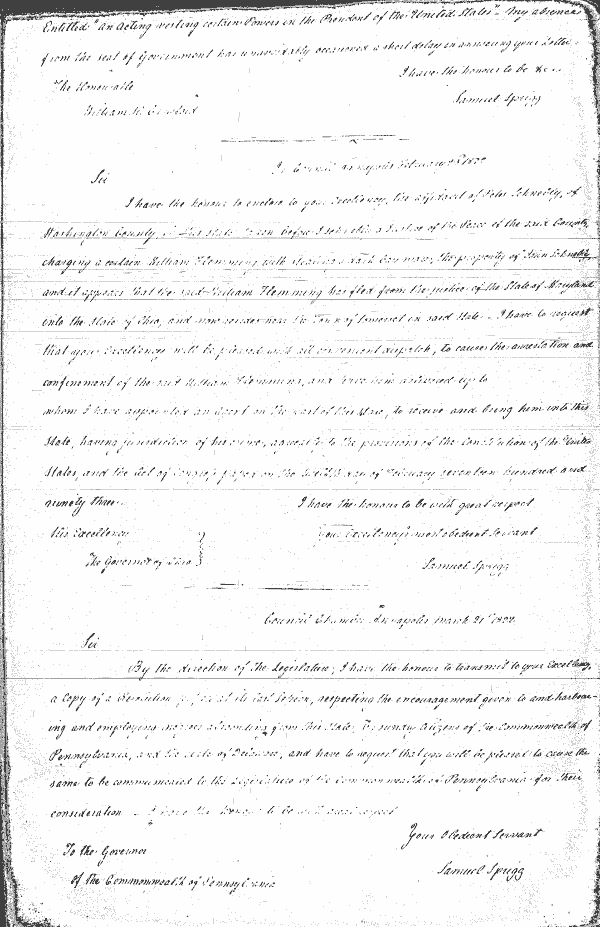 Entitled "an Act vesting certain Powers in the President of the United States". My absence
from the seat of Government has unavoidably occasioned a short delay in answering your Letter.
I have the honour to be &c.
The Honourable
William H. Crawford
Samuel Sprigg
In Council Annapolis February
Sir
I have the honour to enclose to your Excellency, the affidavit of Peter Schnebly, of
Washington County, in this State taken before a Justice of the Peace of the said County,
charging a certain William Flemming with stealing a dark bay mare, the property of Schnebly,
and it appears that the said William Flemming has fled from the justice of the State of Maryland
into the State of Ohio, and now resides near the Town of Somerset in said State. I have to request
that your Excellency will be pleased with all convenient dispatch, to cause the arrestation and
confinement of the said William Flemming, and have him delivered up to
whom I have appointed an agent on the part of this State, to receive and bring him into this
State, having jurisdiction of his crime, agreeably to the provisions of the Constitution of the United
States, and the Act of Congress passed on the day of February seventeen hundred and
ninety three.
I have the honour to be with great respect
His Excellency
Your Excellency's most obedient Servant
The Governor of Ohio
Samuel Sprigg
Council Chamber Annapolis March 21st 1822
Sir
By the direction of the Legislature, I have the honour to transmit to your Excellency,
a Copy of a Resolution passed at its last Session, respecting the encouragement given to and harbour-
ing and employing negroes absconding from this State, by sundry Citizens of the Commonwealth of
Pennsylvania, and the State of Delaware, and have to request that you will be pleased to cause the
same to be communicated to the Legislature of the Commonwealth of Pennsylvania for their
consideration. I have the honour to be with great respect
Your Obedient Servant
To the Governor
of the Commonwealth of Pennsylvania
Samuel Sprigg